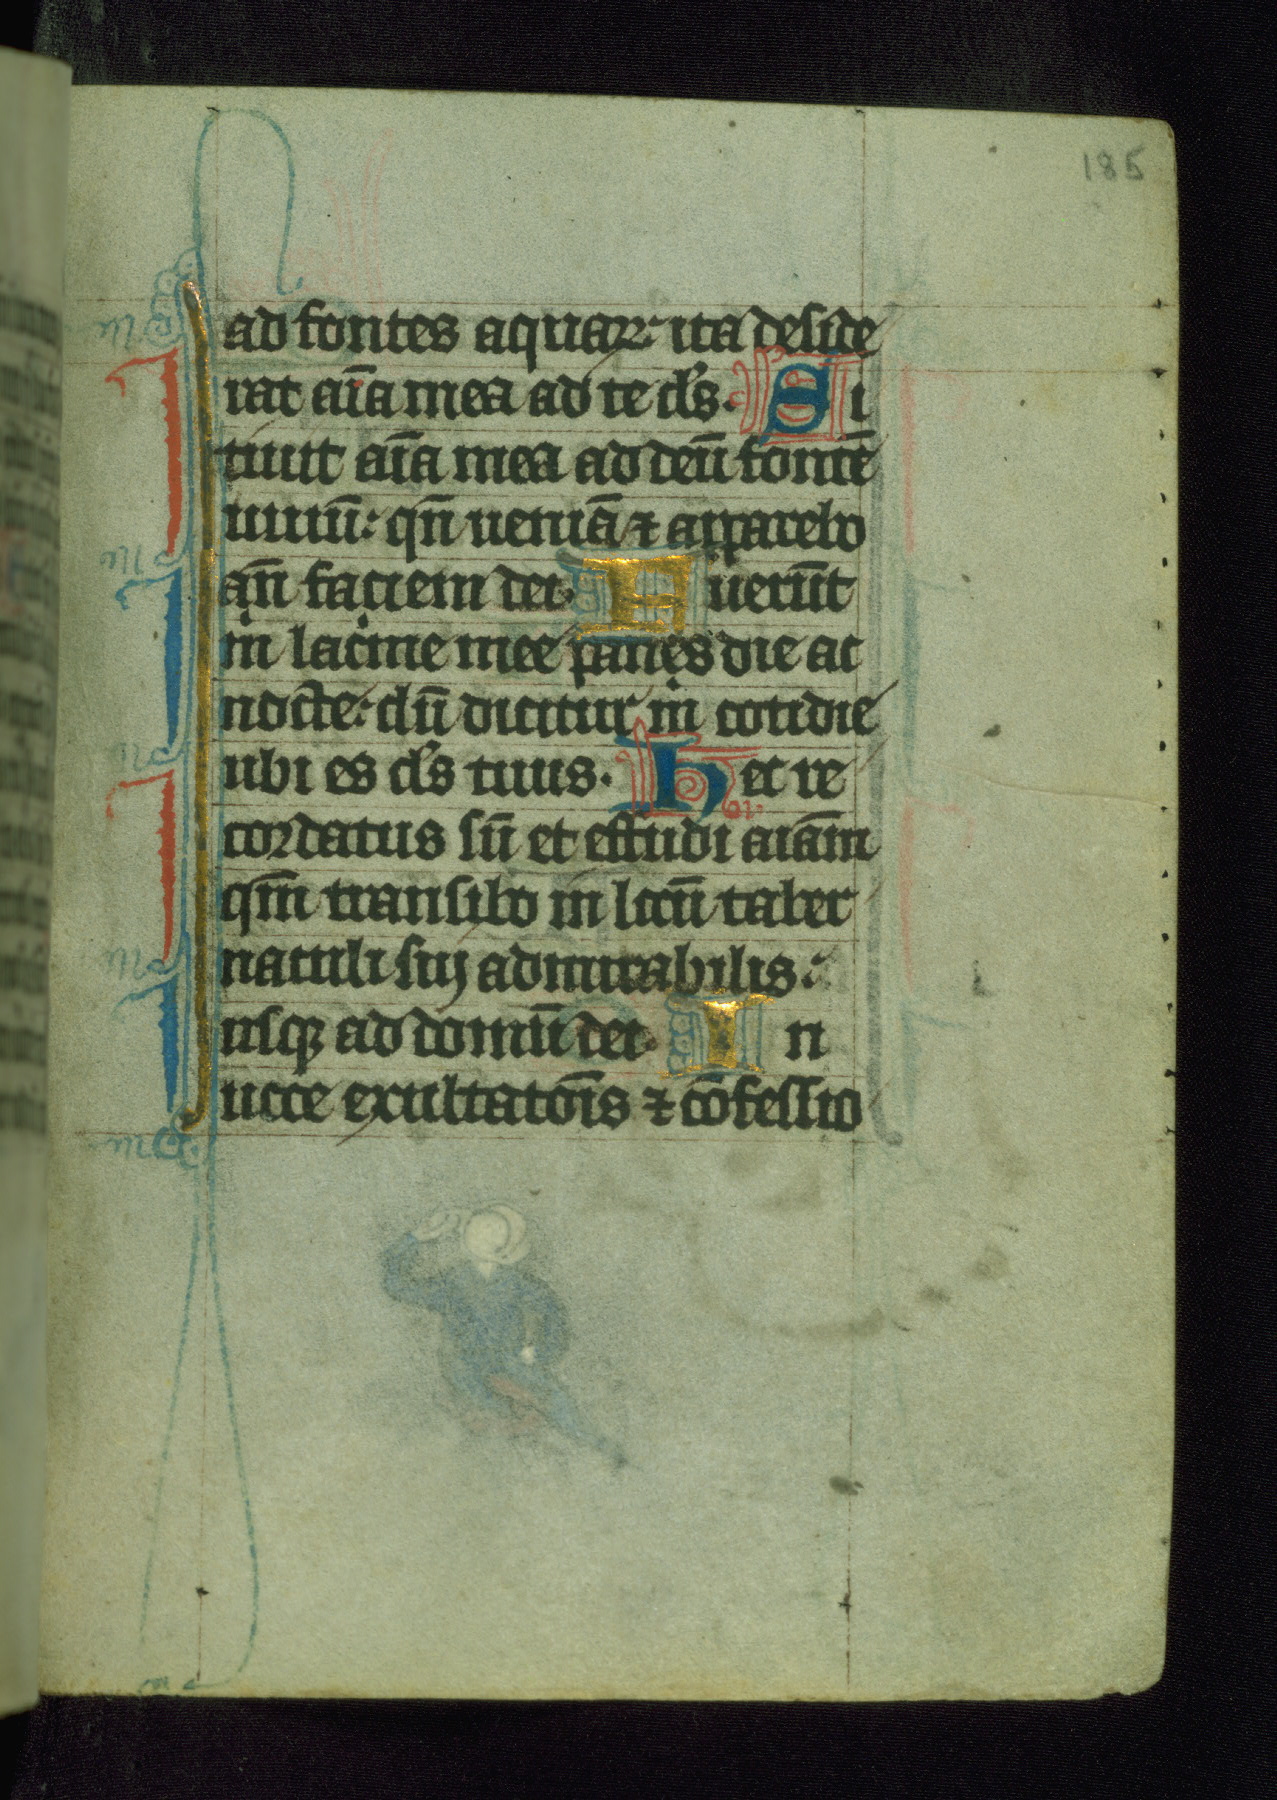 185
ad fontes aquar ita deside
rat aīa mea ad te ds. Si
tiuit aīa mea ad deū fontē
uiuū: qn̄ ueniā ⁊ apparebo
an̄ faciem dei. Fuerūt
m̄ lac̄me mee panes die ac
nocte: dū dicitur m̄ cotidie
ubi es ds tuus. Hec re
cordatus sū et effudi aīam
qm̄ transibo in locū taber
naculi sui admirabilis.
usq ad domū dei. In
uoce exultatōis ⁊ cōfessio